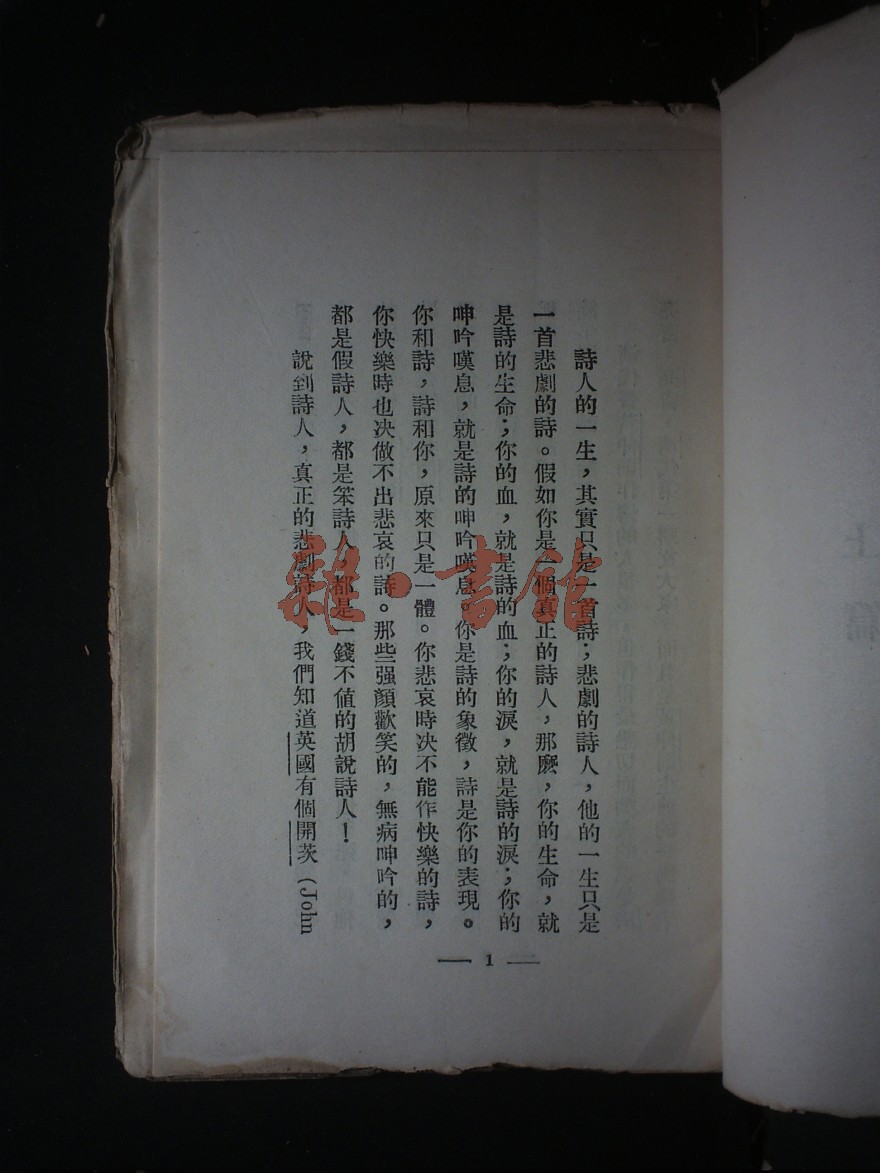 詩人的一生，其實只是一首詩；悲劇的詩人，他的一生只是
一首悲劇的詩。假如你是一個真正的詩人，那麽，你的生命，就
是詩的生命；你的血，就是詩的血；你的淚，就是詩的淚；你的
呻吟嘆息，就是詩的呻吟嘆息。你是詩的象徵，詩是你的表現。
你和詩，詩和你，原來只是一體。你悲哀時决不能作快樂的詩，
你快樂時也决做不出悲哀的詩。那些强顔歡笑的，無病呻吟的，
都是假詩人，都是笨詩人，都是一錢不值的胡說詩人！
說到詩人，真正的悲劇詩人，我們知道英國有個開茨（John
— 1 —
雜·書館
上篇